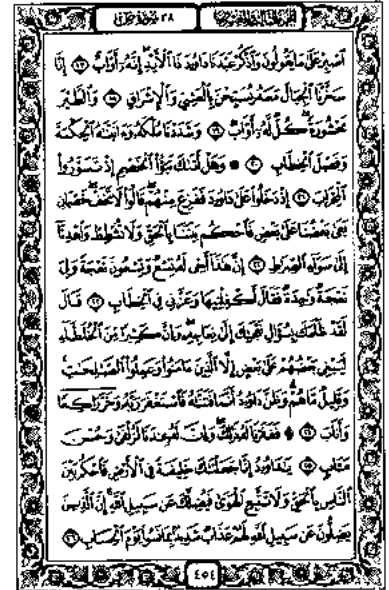 الجزء الثالث والعشرون
٣٨ سورة ص
ٱصْبِرْ عَلَىٰ مَا يَقُولُونَ وَٱذْكُرْ عَبْدَنَا دَاوُۥدَ ذَا ٱلْأَيْدِ ۖ إِنَّهُۥٓ أَوَّابٌ ١٧ إِنَّا
سَخَّرْنَا ٱلْجِبَالَ مَعَهُۥ يُسَبِّحْنَ بِٱلْعَشِىِّ وَٱلْإِشْرَاقِ ١٨ وَٱلطَّيْرَ
مَحْشُورَةً ۖ كُلٌّ لَّهُۥٓ أَوَّابٌ ١٩ وَشَدَدْنَا مُلْكَهُۥ وَءَاتَيْنَٰهُ ٱلْحِكْمَةَ
وَفَصْلَ ٱلْخِطَابِ ٢٠ ۞ وَهَلْ أَتَىٰكَ نَبَؤُا۟ ٱلْخَصْمِ إِذْ تَسَوَّرُوا۟
ٱلْمِحْرَابَ ٢١ إِذْ دَخَلُوا۟ عَلَىٰ دَاوُۥدَ فَفَزِعَ مِنْهُمْ ۖ قَالُوا۟ لَا تَخَفْ ۖ خَصْمَانِ
بَغَىٰ بَعْضُنَا عَلَىٰ بَعْضٍ فَٱحْكُم بَيْنَنَا بِٱلْحَقِّ وَلَا تُشْطِطْ وَٱهْدِنَآ
إِلَىٰ سَوَآءِ ٱلصِّرَٰطِ ٢٢ إِنَّ هَٰذَآ أَخِى لَهُۥ تِسْعٌ وَتِسْعُونَ نَعْجَةً وَلِىَ
نَعْجَةٌ وَٰحِدَةٌ فَقَالَ أَكْفِلْنِيهَا وَعَزَّنِى فِى ٱلْخِطَابِ ٢٣ قَالَ
لَقَدْ ظَلَمَكَ بِسُؤَالِ نَعْجَتِكَ إِلَىٰ نِعَاجِهِۦ ۖ وَإِنَّ كَثِيرًا مِّنَ ٱلْخُلَطَآءِ
لَيَبْغِى بَعْضُهُمْ عَلَىٰ بَعْضٍ إِلَّا ٱلَّذِينَ ءَامَنُوا۟ وَعَمِلُوا۟ ٱلصَّٰلِحَٰتِ
وَقَلِيلٌ مَّا هُمْ ۗ وَظَنَّ دَاوُۥدُ أَنَّمَا فَتَنَّٰهُ فَٱسْتَغْفَرَ رَبَّهُۥ وَخَرَّ رَاكِعًا
وَأَنَابَ ۩ ٢٤ فَغَفَرْنَا لَهُۥ ذَٰلِكَ ۖ وَإِنَّ لَهُۥ عِندَنَا لَزُلْفَىٰ وَحُسْنَ
مَـَٔابٍ ٢٥ يَٰدَاوُۥدُ إِنَّا جَعَلْنَٰكَ خَلِيفَةً فِى ٱلْأَرْضِ فَٱحْكُم بَيْنَ
ٱلنَّاسِ بِٱلْحَقِّ وَلَا تَتَّبِعِ ٱلْهَوَىٰ فَيُضِلَّكَ عَن سَبِيلِ ٱللَّهِ ۚ إِنَّ ٱلَّذِينَ
يَضِلُّونَ عَن سَبِيلِ ٱللَّهِ لَهُمْ عَذَابٌ شَدِيدٌۢ بِمَا نَسُوا۟ يَوْمَ ٱلْحِسَابِ ٢٦
٤٥٤